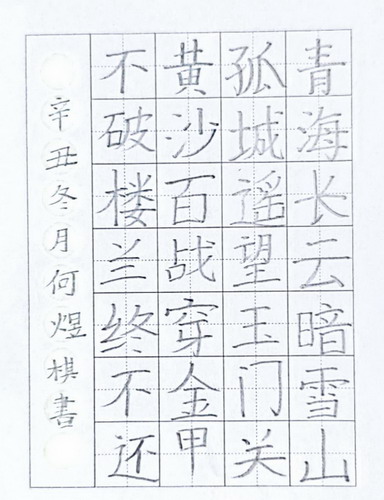 青海长云暗雪山
孤城遥望玉门关
黄沙百战穿金甲
不破楼兰终不还
辛丑冬月何煜棋書